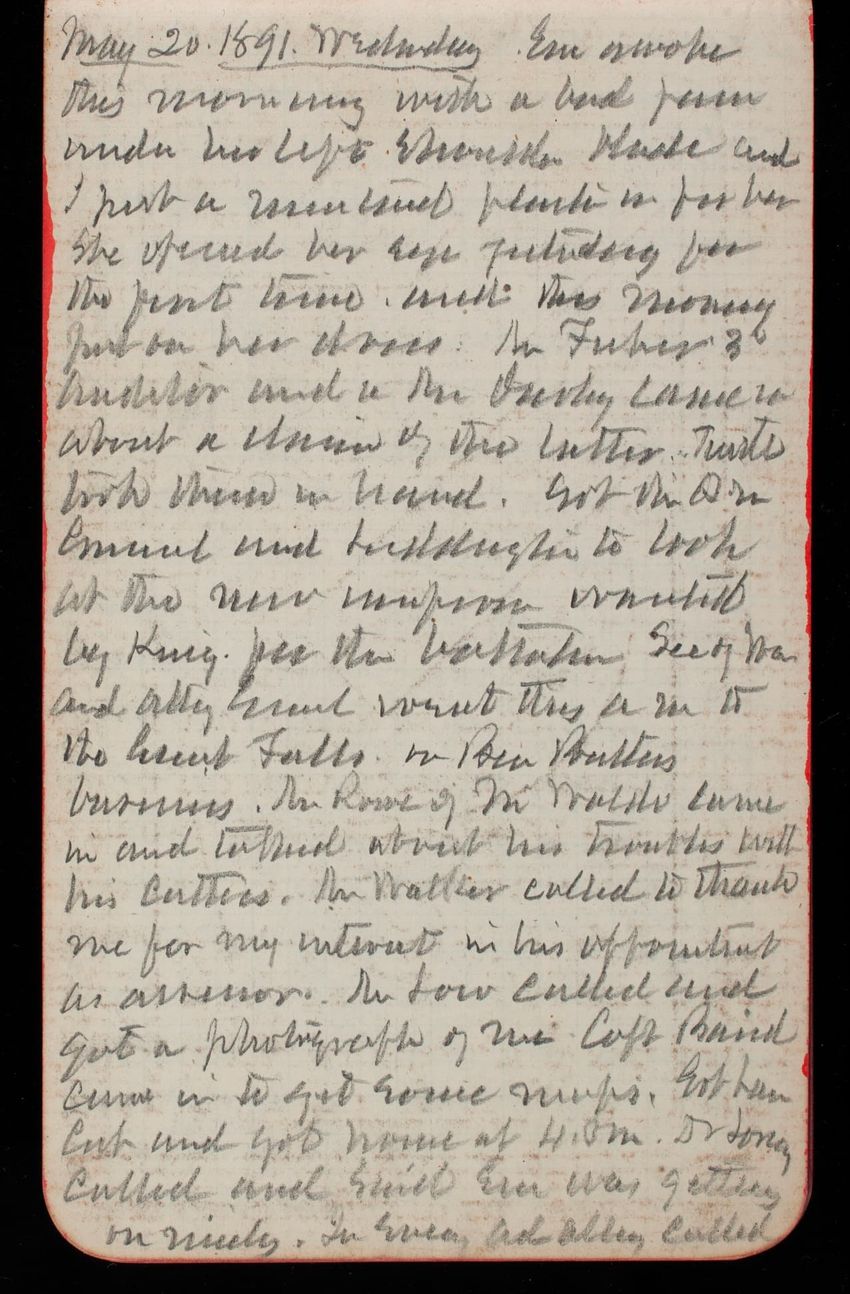 May 20. 1891. Wednesday Em awoke
this morning with a bad pain
under her left shoulder blade and
I put a mustard plaster on for her
She opened her eye yesterday for
the first time and this morning
put on her dress. Mr Fisher 3d
Auditor and a Mr came in
about a claim of the latter.
took them in hand. Got the Q.M.
Genl and Luddington to look
at the new wanted
by King for the battalion Sec of War
and atty Genl went this a m to
the Great Falls on Ben Butlers
business. Mr Rowe of came
in and talked about his troubles with
his Mr Walker called to thank
me for my interest in his appointmt
as assessor. Mr Low called and
got a photograph of me Capt Baird
came in to get some maps. Got hair
Cut and got home at 4. P m. Dr Long
called and said Em was getting
on nicely. In Eveng called